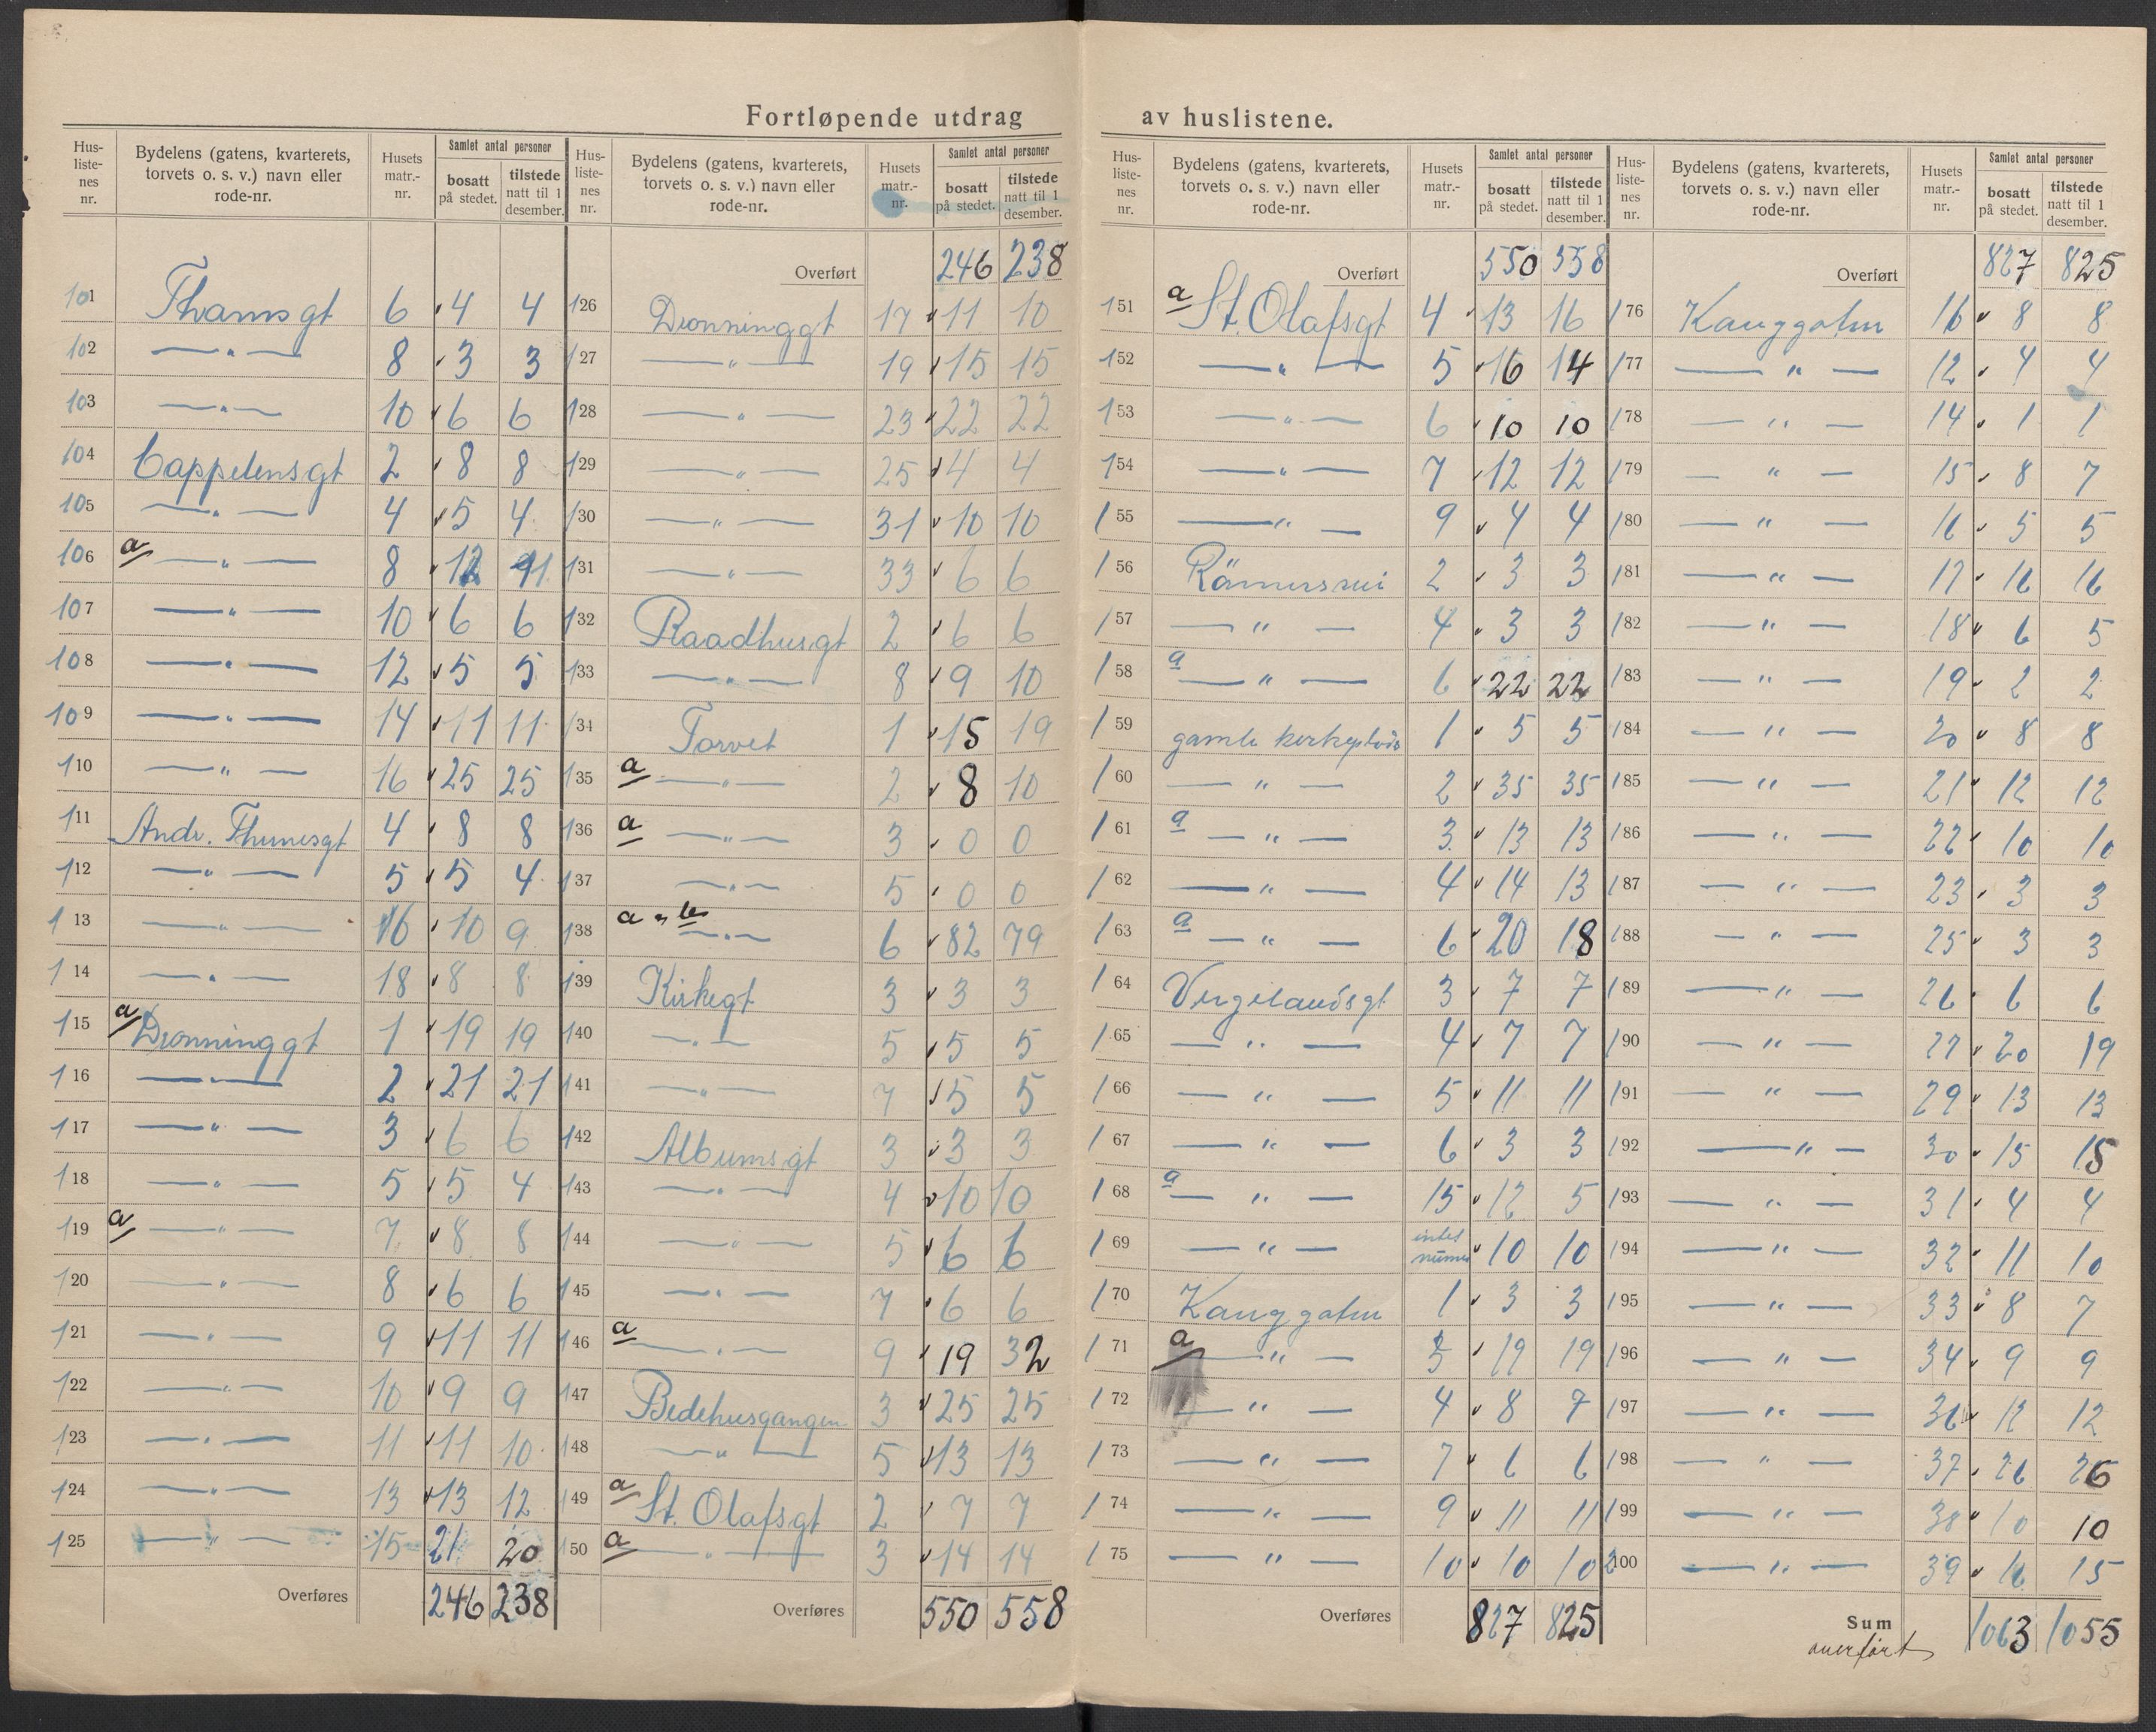 Fortløpende utdrag av huslistene.
Hus-liste-nes nr. Bydelens (gatens, kvarterets, torvets o. s. v.) navn eller rode-nr. Husets matr.-nr. Samlet antal personer bosatt på stedet. tilstede natt til 1 desember.
101 Thamsgt 6 4 4
102 —„— 8 3 3
103 —„— 10 6 6
104 Cappelensgt 2 8 8
105 —„— 4 5 4
106 a —„— 8 12 11
107 —„— 10 6 6
108 —„— 12 5 5
109 —„— 14 11 11
110 —„— 16 25 25
111 Andr. Thunesgt 4 8 8
112 —„— 5 5 4
113 —„— 16 10 9
114 —„— 18 8 8
115 a Dronninggt 1 19 19
116 —„— 2 21 21
117 —„— 3 6 6
118 —„— 5 5 4
119 a —„— 7 8 8
120 —„— 8 6 6
121 —„— 9 11 11
122 —„— 10 9 9
123 —„— 11 11 10
124 —„— 13 13 12
125 —„— 15 21 20
Overføres 246 238
Hus-liste-nes nr. Bydelens (gatens, kvarterets, torvets o. s. v.) navn eller rode-nr. Husets matr.-nr. Samlet antal personer bosatt på stedet. tilstede natt til 1 desember.
Overført 246 238
126 Dronninggt 17 11 10
127 —„— 19 15 15
128 —„— 23 22 22
129 —„— 25 4 4
130 —„— 31 10 10
131 —„— 33 6 6
132 Raadhusgt 2 6 6
133 —„— 8 9 10
134 Torvet 1 15 19
135 a —„— 2 8 10
136 a —„— 3 0 0
137 —„— 5 0 0
138 a „ b —„— 6 82 79
139 Kirkegt 3 3 3
140 —„— 5 5 5
141 —„— 7 5 5
142 Albumsgt 3 3 3
143 —„— 4 10 10
144 —„— 5 6 6
145 —„— 7 6 6
146 a —„— 9 19 32
147 Bedehusgangen 3 25 25
148 —„— 5 13 13
149 a St. Olafsgt 2 7 7
150 a —„— 3 14 14
Overføres 550 558
Hus-liste-nes nr. Bydelens (gatens, kvarterets, torvets o. s. v.) navn eller rode-nr. Husets matr.-nr. Samlet antal personer bosatt på stedet. tilstede natt til 1 desember.
Overført 550 558
151 a St. Olafsgt 4 13 16
152 —„— 5 16 14
153 —„— 6 10 10
154 —„— 7 12 12
155 —„— 9 4 4
156 2 3 3
157 —„— 4 3 3
158 a —„— 6 22 22
159 gamle kirkeplads 1 5 5
160 —„— 2 35 35
161 a —„— 3 13 13
162 —„— 4 14 13
163 a —„— 6 20 18
164 Vergelandsgt 3 7 7
165 —„— 4 7 7
166 —„— 5 11 11
167 —„— 6 3 3
168 a —„— 15 12 5
169 —„— intet numer 10 10
170 Kauggaten 1 3 3
171 a —„— 3 19 19
172 —„— 4 8 7
173 —„— 7 6 6
174 —„— 9 11 11
175 —„— 10 10 10
Overføres 827 825
Hus-liste-nes nr. Bydelens (gatens, kvarterets, torvets o. s. v.) navn eller rode-nr. Husets matr.-nr. Samlet antal personer bosatt på stedet. tilstede natt til 1 desember.
Overført 827 825
176 Kauggaten 8 8
177 —„— 12 4 4
178 —„— 14 1 1
179 —„— 15 8 7
180 —„— 16 5 5
181 —„— 17 16 16
182 —„— 18 6 5
183 —„— 19 2 2
184 —„— 20 8 8
185 —„— 21 12 12
186 —„— 22 10 10
187 —„— 23 3 3
188 —„— 25 3 3
189 —„— 26 6 6
190 —„— 27 20 19
191 —„— 29 13 13
192 —„— 30 15 15
193 —„— 31 4 4
194 —„— 32 11 10
195 —„— 33 8 7
196 —„— 34 9 9
197 —„— 36 12 12
198 —„— 37 26 26
199 —„— 38 10 10
200 —„— 39 16 15
Sum 1063 1055
overført